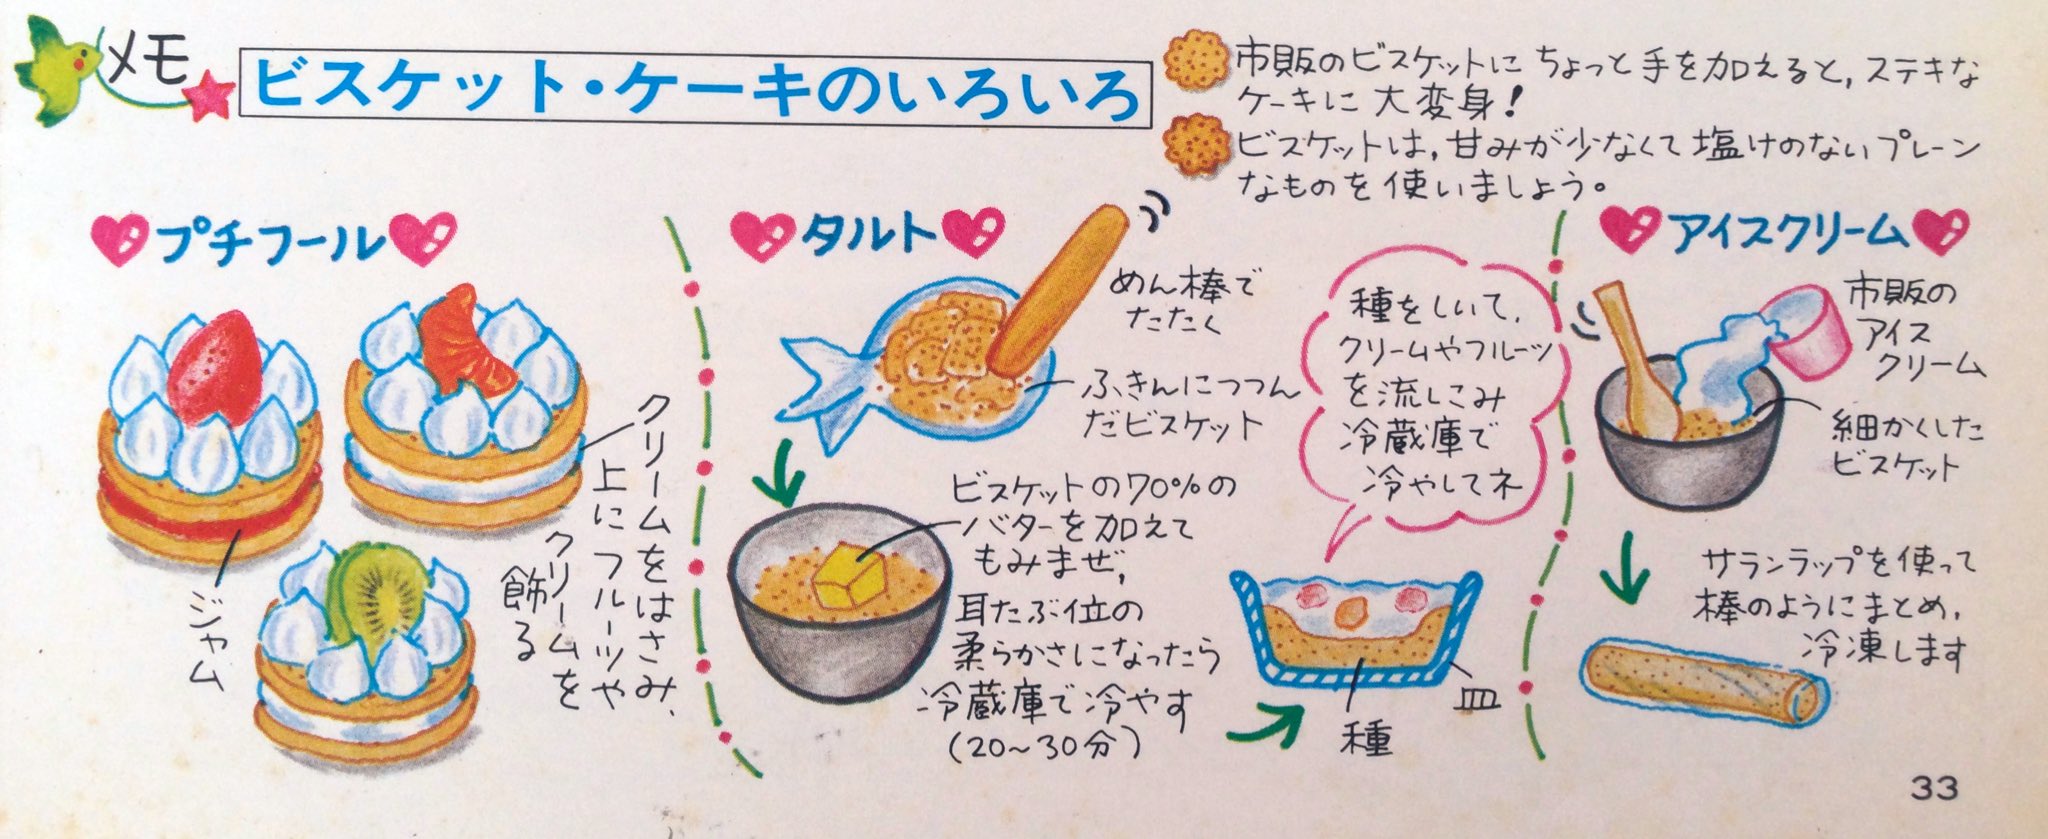 メモ
ビスケット・ケーキのいろいろ
市販のビスケットにちょっと手を加えると,ステキな
ケーキに大変身!
ビスケットは,甘みが少なくて塩けのないプレーン
なものを使いましょう。
プチフール
クリームをはさみ,
上にフルーツや
クリームを
飾る
ジャム
タルト
めん棒で
たたく
ふきんにつつん
だビスケット
ビスケットの70%の
バターを加えて
もみまぜ,
耳たぶ位の
柔らかさになったら
冷蔵庫で冷やす
(20~30分)
種をしいて,
クリームやフルーツ
を流しこみ
冷蔵庫で
冷やしてネ
種
皿
アイスクリーム
市販の
アイス
クリーム
細かくした
ビスケット
サランラップを使って
棒のようにまとめ,
冷凍します
33